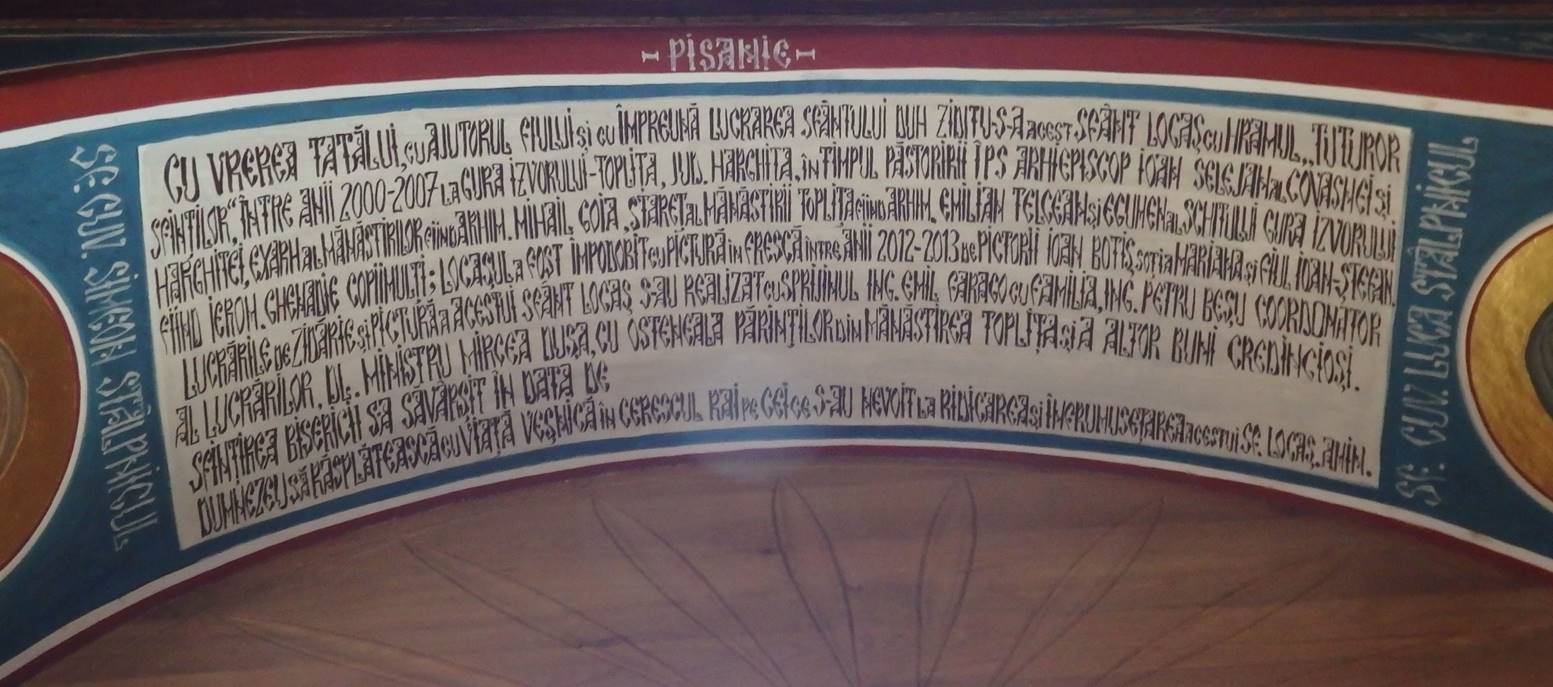 -PISANIE-
CU VREREA TATĂLUI, CU AJUTORUL FIULUI ȘI CU ÎMPREUNĂ LUCRAREA SFÂNTULUI DUH ZIDITU-S-A ACEST SFÂNT LOCAȘ CU HRAMUL „TUTUROR
SFINȚILOR“, ÎNTRE ANII 2000-2007 LA GURA IZVORULUI-TOPLIȚA, JUD. HARGHITA, ÎN TIMPUL PĂSTORIRII ÎPS ARHIEPISCOP IOAN SELEJAN AL COVASNEI ȘI
HARGHITEI, EXARH AL MĂNĂSTIRILOR FIIND ARHIM. MIHAIL GOIA, STAREȚ AL MĂNĂSTIRII TOPLIȚA FIIND ARHIM. EMILIAN TELCEAN ȘI EGUMEN AL SCHITULUI GURA IZVORULUI
FIIND IEROM. GHENADIE COPIIMULȚI; LOCAȘUL A FOST ÎMPODOBIT CU PICTURĂ ÎN FRESCĂ ÎNTRE ANII 2012-2013 DE PICTORII IOAN BOTIȘ, SOȚIA MARIANA ȘI FIUL IOAN-ȘTEFAN.
LUCRĂRILE DE ZIDĂRIE ȘI PICTURĂ A ACESTUI SFÂNT LOCAȘ S-AU REALIZAT CU SPRIJINUL ING. EMIL FARAGO CU FAMILIA, ING. PETRU BEȘU COORDONATOR
AL LUCRĂRILOR, DL. MINISTRU MIRCEA DUȘA, CU OSTENEALA PĂRINȚILOR DIN MĂNĂSTIREA TOPLIȚA ȘI A ALTOR BUNI CREDINCIOȘI.
SFINȚIREA BISERICII SA SĂVÂRȘIT ÎN DATA DE
DUMNEZEU SĂ RĂSPLĂTEASCĂ CU VIAȚĂ VEȘNICĂ ÎN CERESCUL RAI PE CEI CE S-AU NEVOIT LA RIDICAREA ȘI ÎNFRUMUSEȚAREA ACESTUI SF. LOCAȘ, AMIN.
SF. CUV. SIMEON STÂLPNICUL
SF. CUV. LUCA STÂLPNICUL